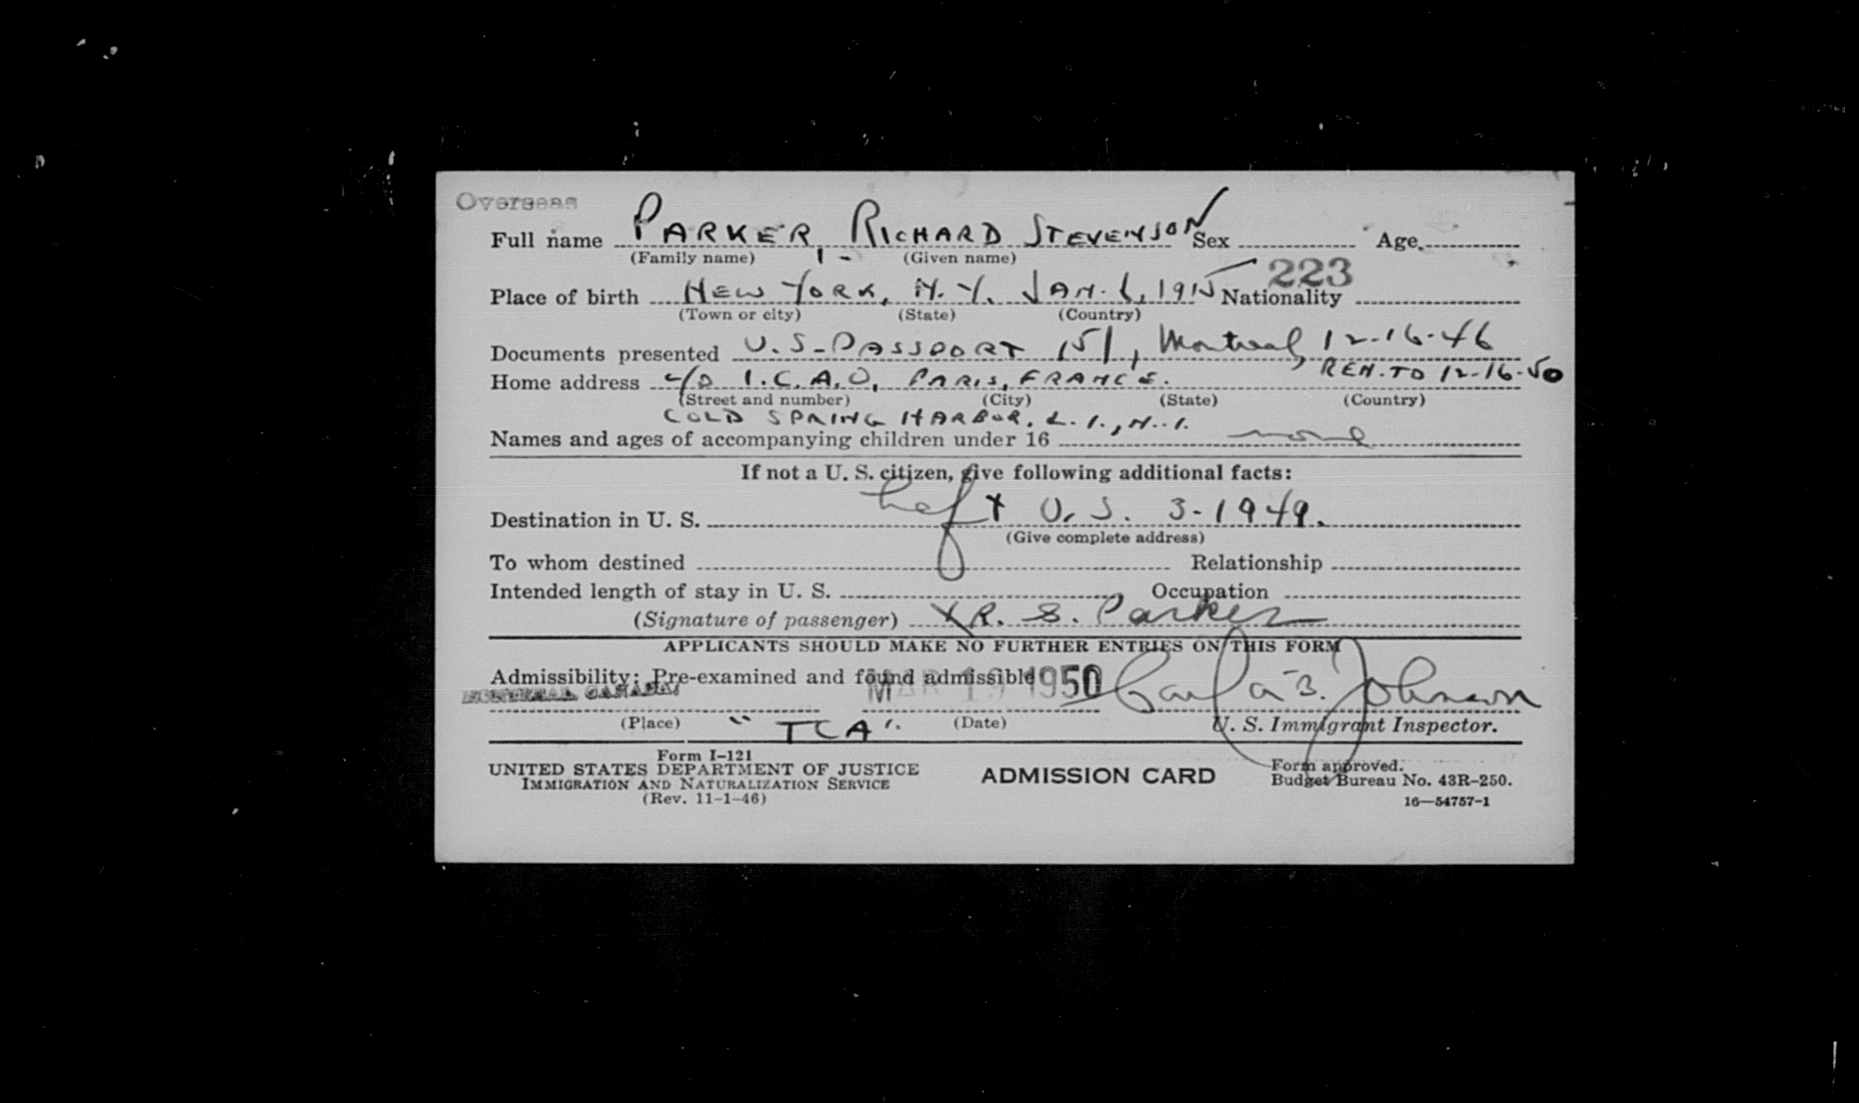 Overseas
Full name PARKER, RICHARD STEVENSON Sex Age
(Family name) (Given name)
223
Place of birth NEW YORK, N.Y. JAN. 6, 1915 Nationality
(Town or city) (State) (Country)
Documents presented U.S. PASSPORT 151, Montreal, 12-16-46
REN. TO 12-16-50
Home address c/o I.C.A.O, PARIS, FRANCE.
(Street and number) (City) (State) (Country)
COLD SPRING HARBOR, L.I., N.Y.
Names and ages of accompanying children under 16 none
If not a U. S. citizen, give following additional facts:
Destination in U. S. Left U.S. 3-1949.
(Give complete address)
To whom destined Relationship
Intended length of stay in U. S. Occupation
(Signature of passenger) X R. S. Parker
APPLICANTS SHOULD MAKE NO FURTHER ENTRIES ON THIS FORM
Admissibility: Pre-examined and found admissible
MONTREAL CANADA MAR 19 1950 Johnson
(Place) "TCA". (Date) U. S. Immigrant Inspector.
Form I-121
UNITED STATES DEPARTMENT OF JUSTICE
IMMIGRATION AND NATURALIZATION SERVICE
(Rev. 11-1-46)
ADMISSION CARD
Form approved.
Budget Bureau No. 43R-250.
16—54757-1